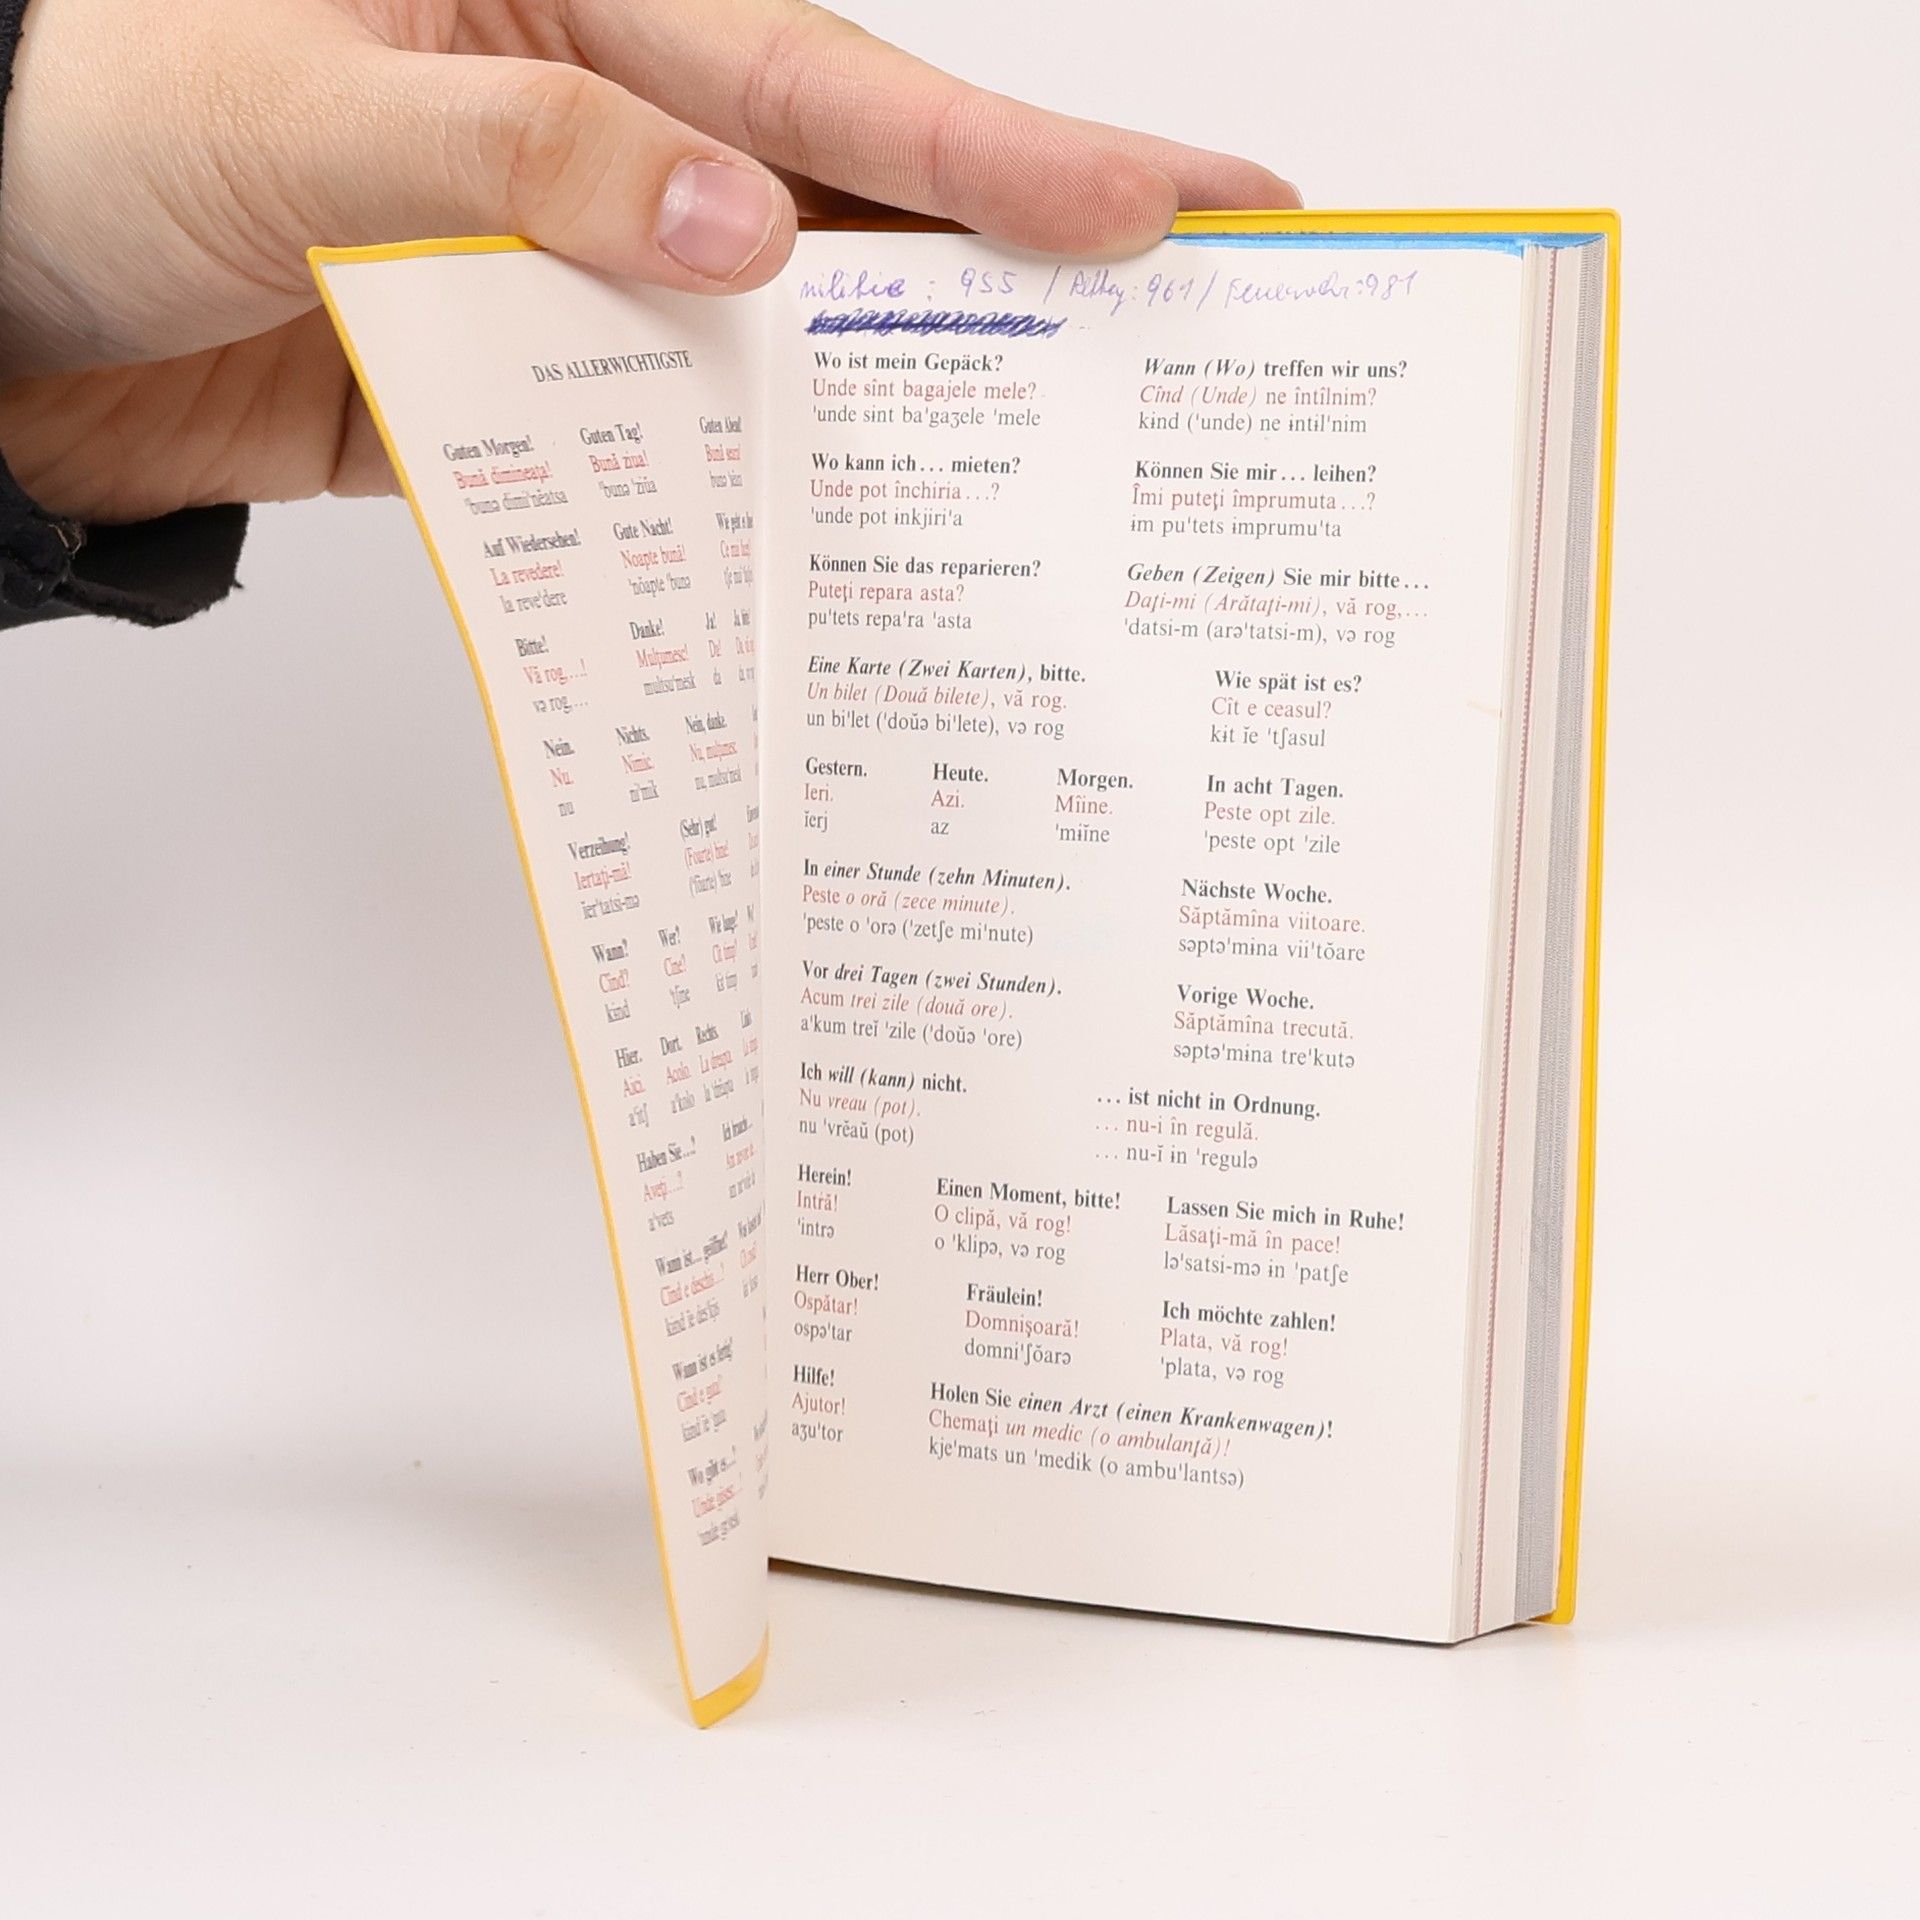 DAS ALLERWICHTIGSTE
Guten Morgen! Guten Tag! Guten Abend!
Bună dimineaţa! Bună ziua! Bună seara!
'bunə dimi'nĕatsa 'bunə 'zĭŭa
Auf Wiedersehen! Gute Nacht!
La revedere! Noapte bună!
la reve'dere 'nŏapte 'bunə
Bitte! Danke! Ja!
Vă rog,...! Mulţumesc! Da!
və rog,... multsu'mesk da
Nein. Nichts. Nein, danke.
Nu. Nimic. Nu, mulţumesc.
nu ni'mik nu, multsu'mesk
Verzeihung! (Sehr) gut!
Iertaţi-mă! (Foarte) bine!
ĭer'tatsi-mə ('fŏarte) 'bine
Wann? Wer? Wie lange?
Cînd? Cine? Cît timp?
kɨnd 'tʃine kɨt timp
Hier. Dort. Rechts.
Aici. Acolo. La dreapta.
a'itʃ a'kolo la 'drĕapta
Haben Sie...?
Aveţi...?
a'vets
Wann ist... geöffnet?
Cînd e deschis...?
kɨnd ĭe des'kjis
Wann ist es fertig?
Cînd e gata?
kɨnd ĭe 'gata
Wo gibt es...?
Unde găsesc...?
'unde gə'sesk
militie : 955 / Rettung : 961 / Feuerwehr : 981
Wo ist mein Gepäck? Wann (Wo) treffen wir uns?
Unde sînt bagajele mele? Cînd (Unde) ne întîlnim?
'unde sɨnt ba'gaʒele 'mele kɨnd ('unde) ne ɨntɨl'nim
Wo kann ich... mieten? Können Sie mir... leihen?
Unde pot închiria...? Îmi puteţi împrumuta...?
'unde pot ɨnkjiri'a ɨm pu'tets ɨmprumu'ta
Können Sie das reparieren? Geben (Zeigen) Sie mir bitte...
Puteţi repara asta? Daţi-mi (Arătaţi-mi), vă rog,...
pu'tets repa'ra 'asta 'datsi-m (arə'tatsi-m), və rog
Eine Karte (Zwei Karten), bitte. Wie spät ist es?
Un bilet (Două bilete), vă rog. Cît e ceasul?
un bi'let ('doŭə bi'lete), və rog kɨt ĭe 'tʃasul
Gestern. Heute. Morgen. In acht Tagen.
Ieri. Azi. Mîine. Peste opt zile.
ĭerj az 'mɨĭne 'peste opt 'zile
In einer Stunde (zehn Minuten). Nächste Woche.
Peste o oră (zece minute). Săptămîna viitoare.
'peste o 'orə ('zetʃe mi'nute) səptə'mɨna vii'tŏare
Vor drei Tagen (zwei Stunden). Vorige Woche.
Acum trei zile (două ore). Săptămîna trecută.
a'kum treĭ 'zile ('doŭə 'ore) səptə'mɨna tre'kutə
Ich will (kann) nicht. ... ist nicht in Ordnung.
Nu vreau (pot). ... nu-i în regulă.
nu 'vrĕaŭ (pot) ... nu-ĭ ɨn 'regulə
Herein! Einen Moment, bitte! Lassen Sie mich in Ruhe!
Intră! O clipă, vă rog! Lăsaţi-mă în pace!
'intrə o 'klipə, və rog lə'satsi-mə ɨn 'patʃe
Herr Ober! Fräulein! Ich möchte zahlen!
Ospătar! Domnişoară! Plata, vă rog!
ospə'tar domni'ʃŏarə 'plata, və rog
Hilfe! Holen Sie einen Arzt (einen Krankenwagen)!
Ajutor! Chemaţi un medic (o ambulanţă)!
aʒu'tor kje'mats un 'medik (o ambu'lantsə)